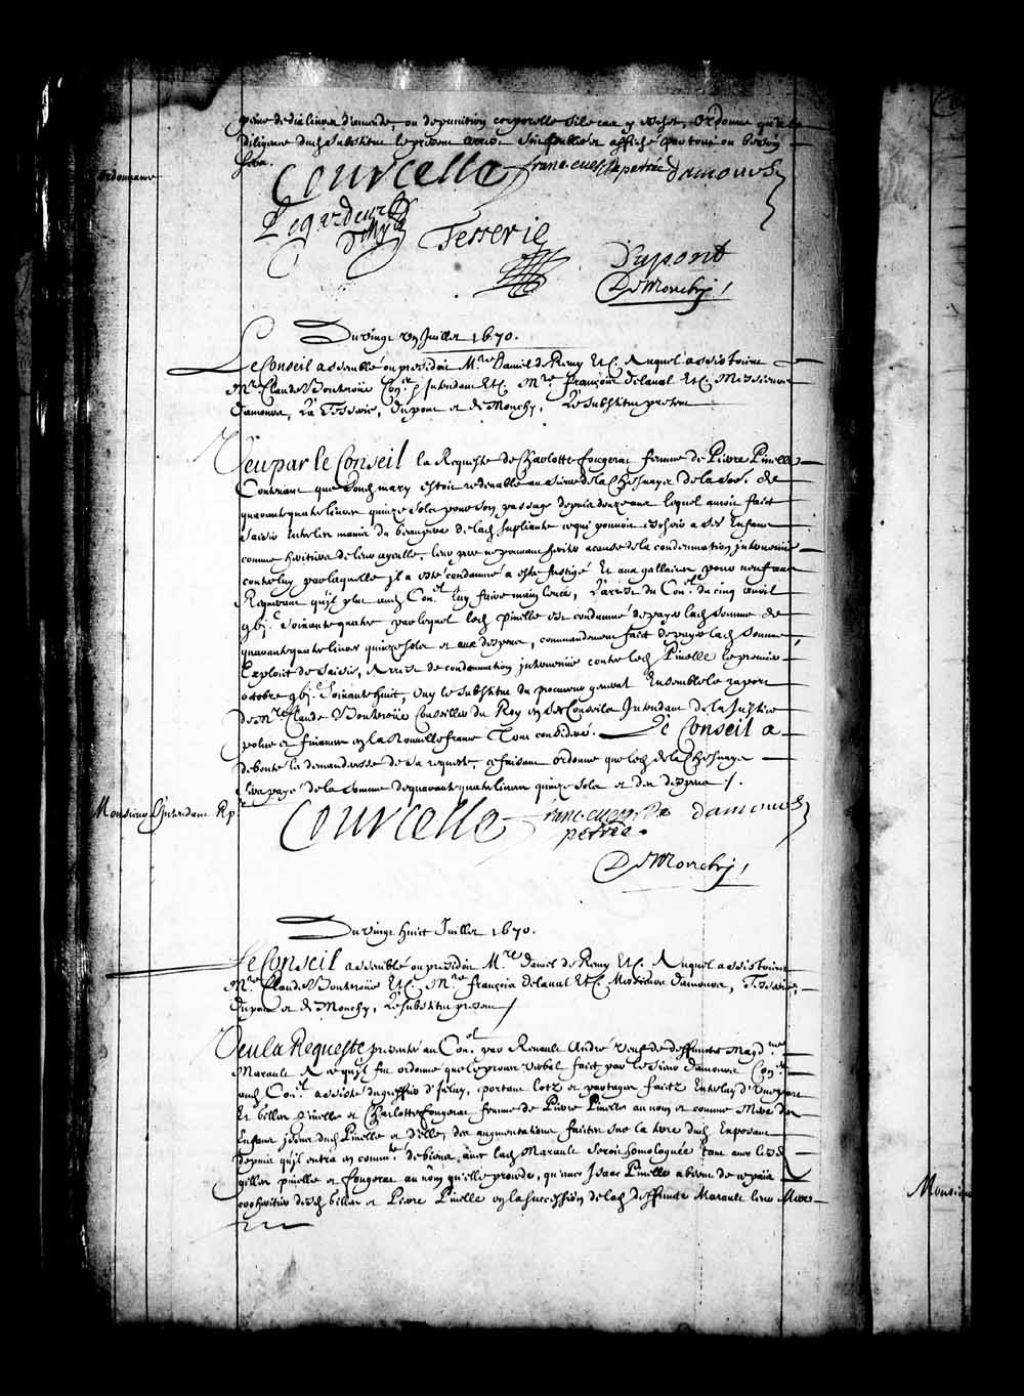 peine de dix livres d'amende, ou de punition corporelle s'il y eschet, Ordonne qu'à la
diligence dud. substitut le present arrest sera publié et affiché par tout ou besoin
sera.
ordonnance
Courcelle franc. euesque de petrée damours
Legardeur Tilly
Tesserie
Dupont
DeMonchy
Du vingt un Juillet 1670.
Le Conseil assemblé ou presidoit Mre. Daniel de Remy Etc. Auquel assistoient
Mre. Claude Bouteroüe Coner. Intendant Etc. Mre. françois de laual Etc. Messieurs
Damours, La Tesserie, dupont et de Monchy, Le substitut present
Veu par le Conseil la Requeste de Charlotte fougerat femme de Pierre Pinelle
Contenant que sond. mary estoit redeuable au sieur de la Chesnaye de la so. de
quarante quatre liures quinze sols pour son passage depuis douze ans lequel auroit fait
saisir entre les mains du de lad. supliante ce qui pouuoit eschoir a ses Enfans
comme heritiers de leur ayeulle, leur pere ne pouuant heriter a cause de la condemnation interuenüe
contre luy par laquelle il a esté condamné a estre fustigé Et aux gallaires pour neuf ans
Requerant qu'il plut aud. Conel. luy faire main leuée, L'arrest du Conel. du cinq auril
gbjc. soixante quatre par lequel led. pinelle est condamné de payer lad. somme de
quarante quatre liures quinze sols et aux despens, commandement fait de payer lad. somme,
Exploit de saisie, Arrest de condemnation interuenüe contre led. Pinelle le premier
octobre gbjc. soixante huit, ouy le substitut du procureur general Ensemble le raport
de Mre. Claude Bouteroüe Conseiller du Roy en ses Conseils Intendant de la Justice
police et finances en la Nouuelle france Tout consideré. Le Conseil a
debouté la demanderesse de sa requeste, et faisant ordonne que led. de la Chesnaye
sera payé de la somme de quarante quatre liures quinze sols et des despens ./.
Monsieur L'jntendant Rpr.
Courcelle franc. euesque de damours
petrée.
DeMonchy
Du vingt huict Juillet 1670.
Le Conseil assemblé ou presidoit Mre. daniel de Remy Etc. Auquel assistoient
Mre. Claude Bouteroüe Etc. Mre. françois de laual Etc. Messieurs damours, Tesserie,
dupont et de Monchy, Le substitut present
Veu la Requeste presentée au Conel. par Renault André veuf de deffuncte Magdne.
Marault A ce qu'il fut ordonné que le proces verbal fait par le sieur damours Coner.
aud. Conel. assisté du greffier d'iceluy, portant lotz et partages faitz Entre luy d'une part
Et Gilles pinelle et Charlotte fougerat femme de Pierre Pinelle au nom et comme Mere des
Enfans jssus dud. Pinelle et d'elle, des augmentations faites sur la terre dud. Exposant
depuis qu'il entra en commté. de biens auec lad. Marault seroit homologuée tant auec lesd.
gilles pinelle et fougerat au nom qu'elle procede, qu'auec Isaac Pinelle absent de ce pais
cooheritier desd. Gilles et Pierre Pinelle en la succession de lad. deffuncte Marault leur Mere
Monsieur